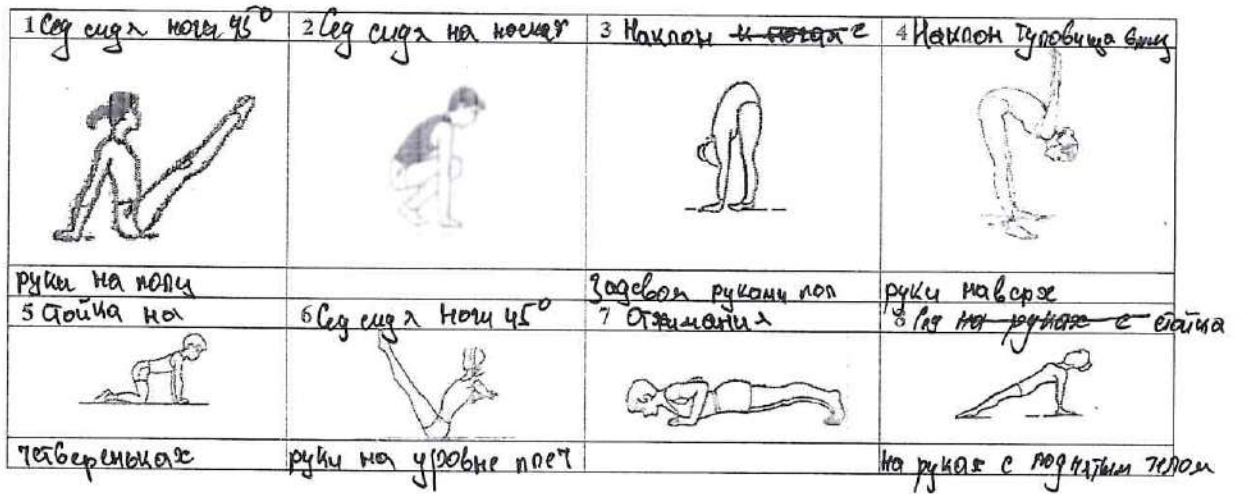 1 Сед сидя ноги 45°
2 Сед сидя на носках
3 Наклон и ногая с
4 Наклон туловища вниз
руки на полу
Задевая руками пол
руки наверх
5 Стойка на
6 Сед сидя ноги 45°
7 Отжимания
8 Сед на руках с стойка
четвереньках
руки на уровне плеч
на руках с поднятым телом